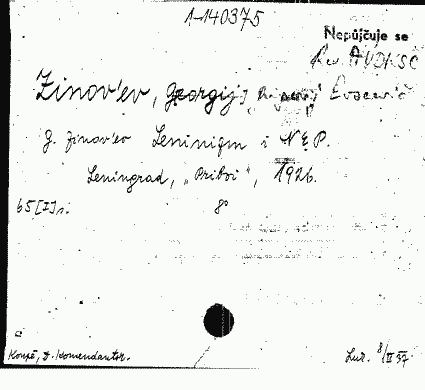 1-140375
Nepůjčuje se
Rev. AVDKSČ
Zinov'ev, Georgij Evseevič
G. Zinov'ev Leninizm i NĖP.
Leningrad, "Priboi", 1926.
65 [I] s. 8°
Koupě, D. Komendantov. Lur. 8/II 57